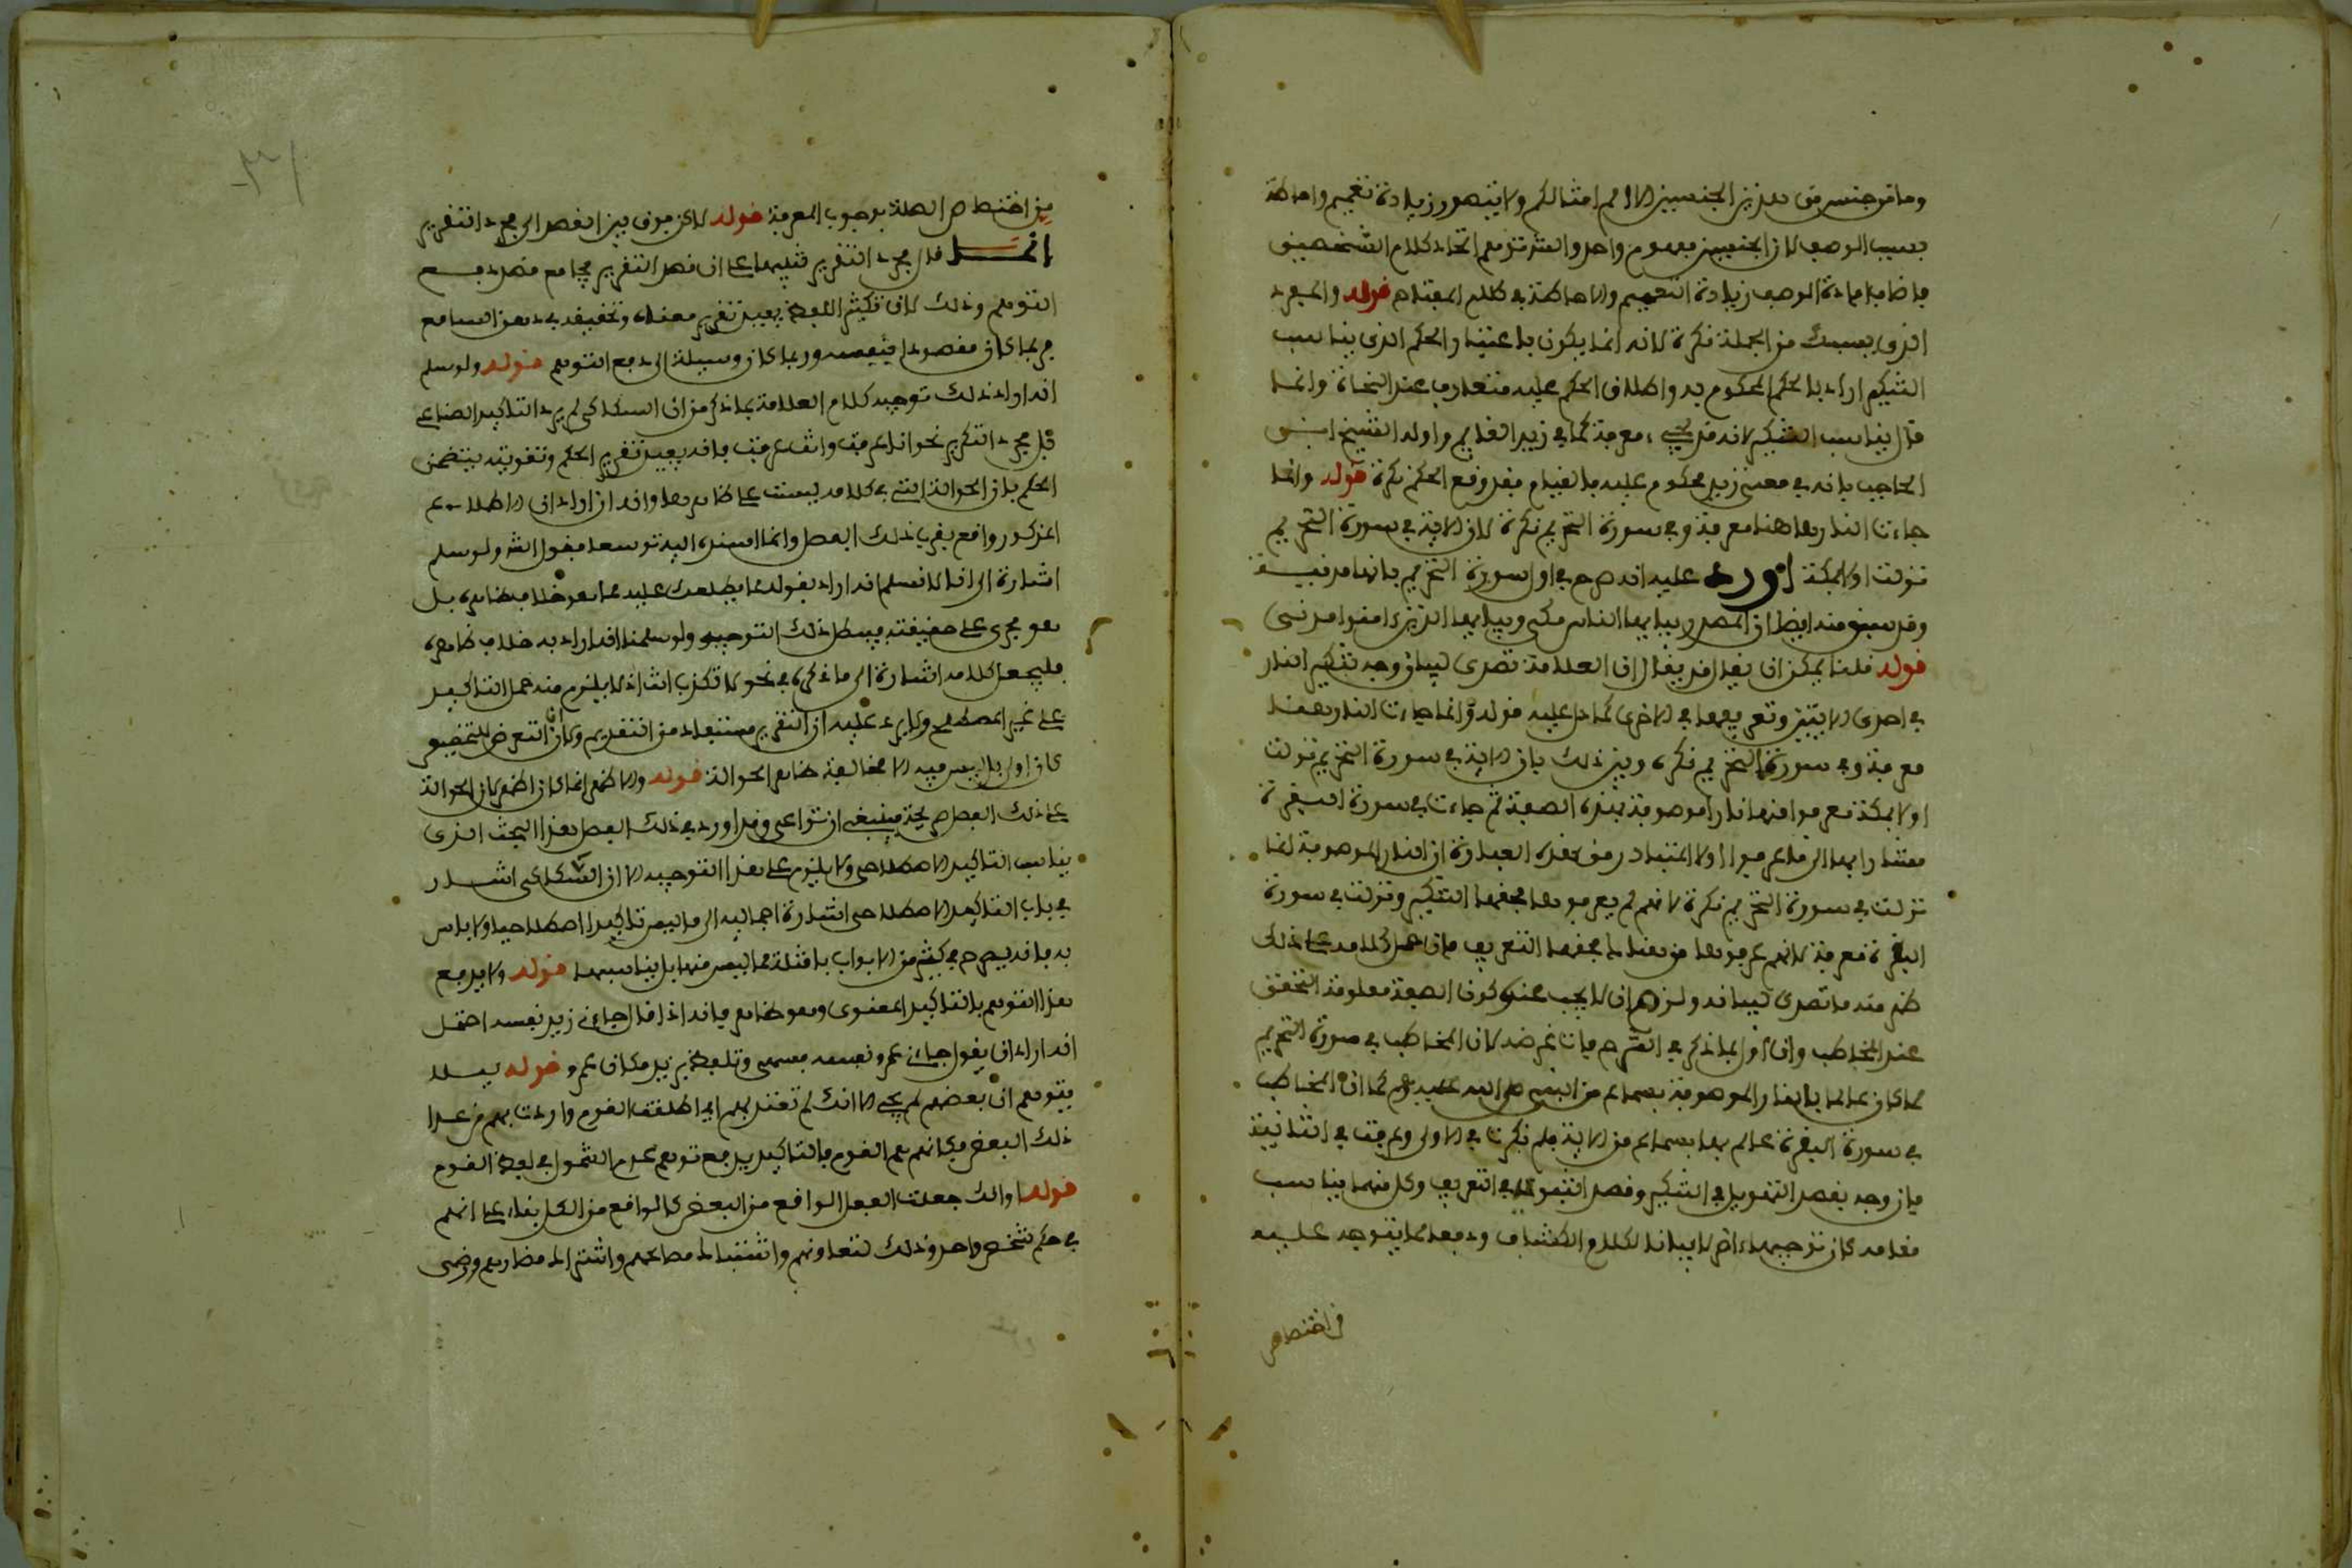 وما من جنس من هذين الجنسين الا امم امثالكم ولا يتصور زيادة تعميم واحاطة
بسبب الوصف لان الجنسين مفهوم واحد والله تعالى اتحاد كلام الشخصين
فاضافة الوصف زيادة التعميم والاحاطة في كلام المفتاح قوله والمفرد
الذي يسبك من الجملة نكرة لانه انما يكون باعتبار الحكم الذي يناسب
التنكير اراد بالحكم المحكوم به واطلاق الحكم عليه متعارف عند النحاة وانما
قال يناسب التنكير لانه قد يجيء معرفة كما في زيد القائم واوله الشيخ ابن
الحاجب بانه في معنى زيد محكوم عليه بالقيام فقد وقع الحكم نكرة قوله وانما
جاءت النار هاهنا معرفة وفي سورة التحريم نكرة لان الاية في سورة التحريم
نزلت اولا بمكة اورد عليه انه صرح في اول سورة التحريم بانها مدنية
وقد سبق منه ايضا ان المصدر بيا ايها الناس مكي وبيا ايها الذين امنوا مدني
قوله قلنا يمكن ان يقال ان العلامة تصدى لبيان وجه تنكير النار
في احدى الايتين وتعريفها في الاخرى كما دل عليه قوله وانما جاءت النار هاهنا
معرفة وفي سورة التحريم نكرة وبين ذلك بان الاية في سورة التحريم نزلت
اولا بمكة فعرفوا منها نارا موصوفة بهذه الصفة ثم جاءت في سورة البقرة
مشارا بها الى ما عرفوا اولا والمتبادر من هذه العبارة ان النار الموصوفة انما
نزلت في سورة التحريم نكرة لانهم لم يعرفوها فحقها التنكير ونزلت في سورة
البقرة معرفة لانهم عرفوها من هناك فحقها التعريف فان حمل كلامه على ذلك
ظهر منه ما تصدى لبيانه ولزم ان لا يجب عنده كون الصفة معلومة التحقق
عند المخاطب وان اول بما ذكر في الشرح فات غرضه لان المخاطب في سورة التحريم
كما كان عالما بالنار الموصوفة بسماع من النبي صلى الله عليه وسلم كما ان المخاطب
في سورة البقرة عالم بها بسماع من الاية فلم نكرت في الاولى وعرفت في الثانية
فان وجه بقصد التهويل في التنكير وقصد التهويل في التعريف وكل منهما يناسب
مقامه كان توجيها اخر لا بيانا لكلام الكشاف ودفعا لما يتوجه عليه
من اختصاص
من اختصاص الصلة بوجوب المعرفة قوله لان فرق بين القصد الى مجرد التقرير
انما قال مجرد التقرير تنبيها على ان قصد التقرير يجامع قصد دفع
التوهم وذلك لان تكثير اللفظ يفيد تقرير معناه وتحقيقه في ذهن السامع
فربما كان مقصودا بنفسه وربما كان وسيلة الى دفع التوهم قوله ولو سلم
انه اراد ذلك توجيه كلام العلامة بما ذكر من ان السكاكي لم يرد التاكيد الصناعي
بل مجرد التكرير نحو انا عرفت وانت عرفت فانه يفيد تقرير الحكم وتقويته يتضمن
الحكم بان الحوالة التي في كلامه ليست على ظاهرها وانه ان اراد ان الاطلاع
المذكور واقع بقرب ذلك الفصل وانما اسنده اليه توسعا فقول الشارح ولو سلم
اشارة الى انا لا نسلم انه اراد بقوله كما يطلعك عليه ما هو خلاف ظاهره بل
هو مجرى على حقيقته فيبطل ذلك التوجيه ولو سلمنا انه اراد به خلاف ظاهره
فليجعل كلامه اشارة الى ما ذكره في نحو لا تكذب انت اذ لا يلزم منه حمل التاكيد
على غير المصطلح ولا يرد عليه ان التقرير مستفاد من التقديم وكان التعرض للتخصيص
كان اولى بل ليس فيه الا مخالفة ظاهر الحوالة قوله والاظهر انما كان اظهر لان الحوالة
على ذلك الفصل صريحة فينبغي ان تراعى وقد اورد في ذلك الفصل هذا البحث الذي
يناسب التاكيد الاصطلاحي ولا يلزم على هذا التوجيه الا ان السكاكي اشار
في باب التاكيد الاصطلاحي اشارة اجمالية الى ما ليس تاكيدا اصطلاحيا ولا باس
به فانه يصرح في كثير من الابواب بامثلة مما ليس منها بل يناسبها قوله ولا يدفع
هذا التوهم بالتاكيد المعنوي وهو ظاهر فانه اذا قال جاءني زيد نفسه احتمل
انه اراد ان يقول جاءني عمرو نفسه فسهى وتلفظ بزيد مكان عمرو قوله ليلا
يتوهم ان بعضهم لم يجئ الا انك لم تعتد بهم اي اطلقت القوم واردت بهم من عدا
ذلك البعض فكانهم هم القوم فبالتاكيد يدفع توهم عدم الشمول في لفظ القوم
قوله او انك جعلت الفعل الواقع من البعض كالواقع من الكل بناء على انهم
في حكم شخص واحد وذلك لتعاونهم واشتباك مصالحهم واشتراك مضارهم ورضى